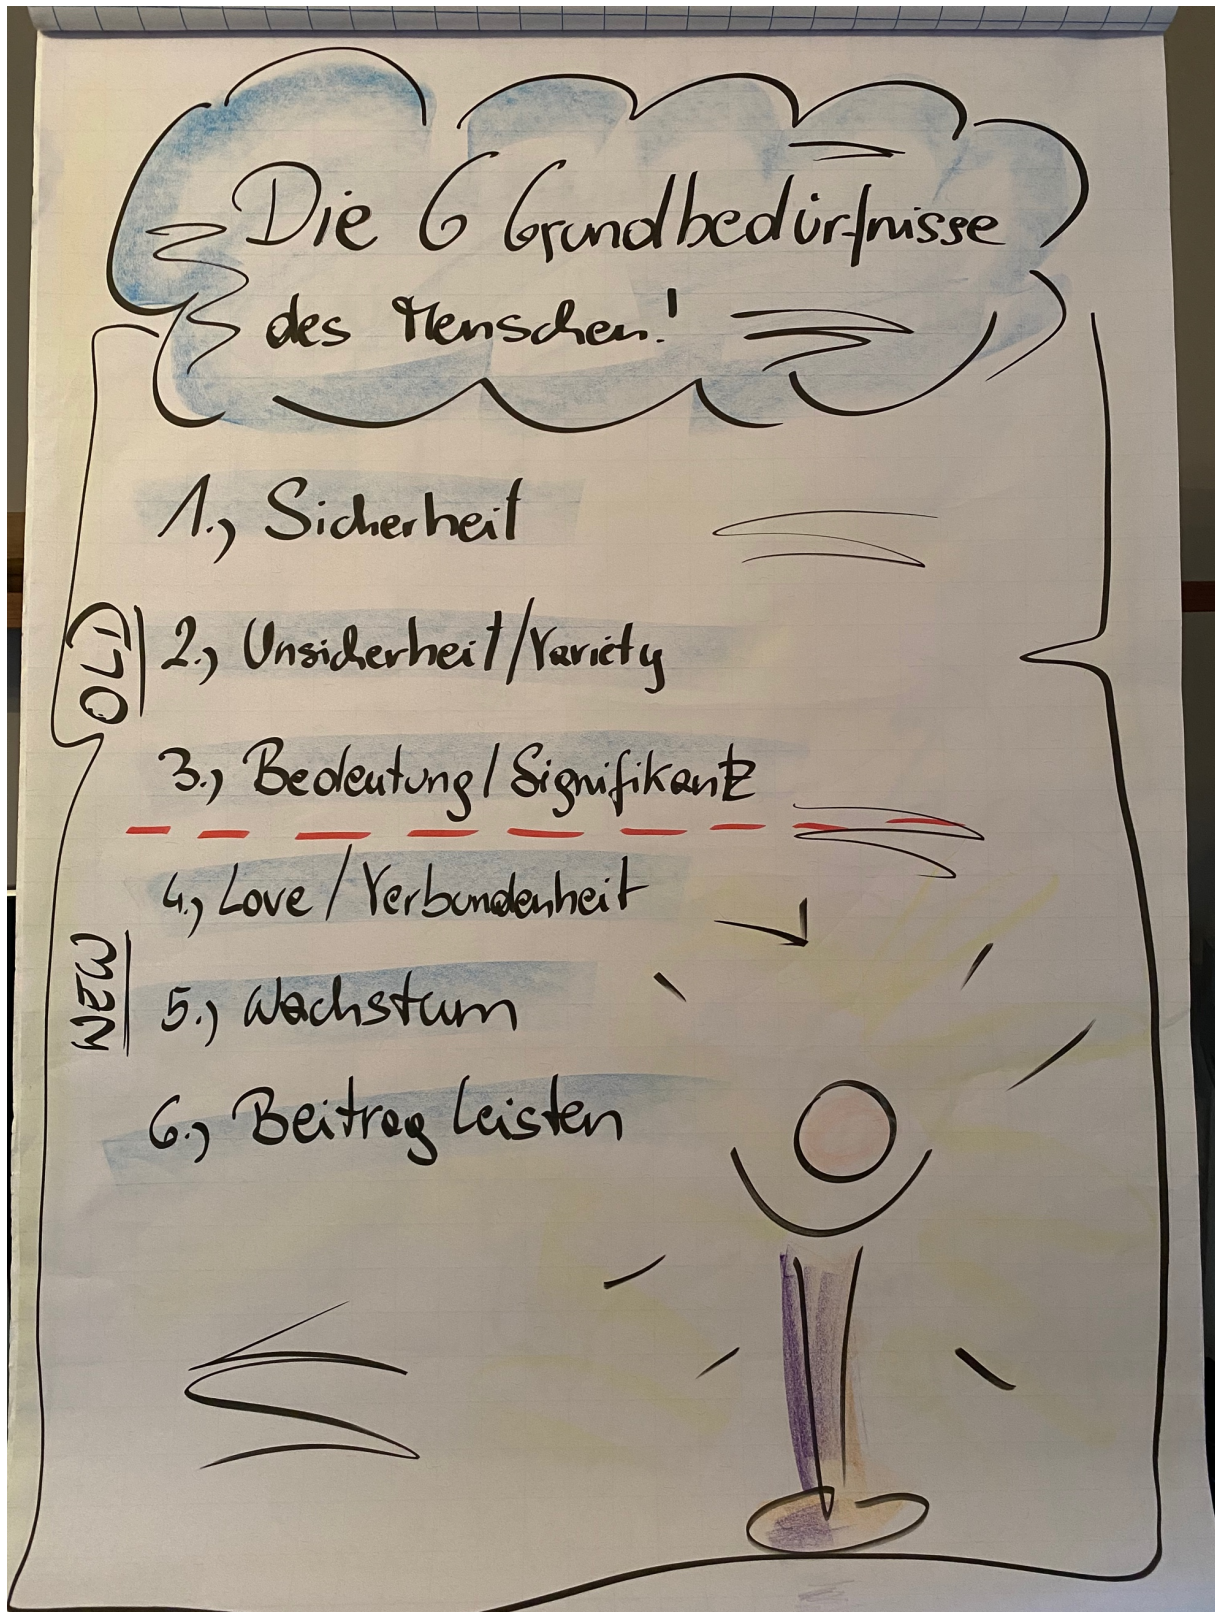 Die 6 Grundbedürfnisse
des Menschen!
1., Sicherheit
OLD
2., Unsicherheit/Variety
3., Bedeutung/Signifikantz
4., Love/Verbundenheit
NEW
5., Wachstum
6., Beitrag leisten